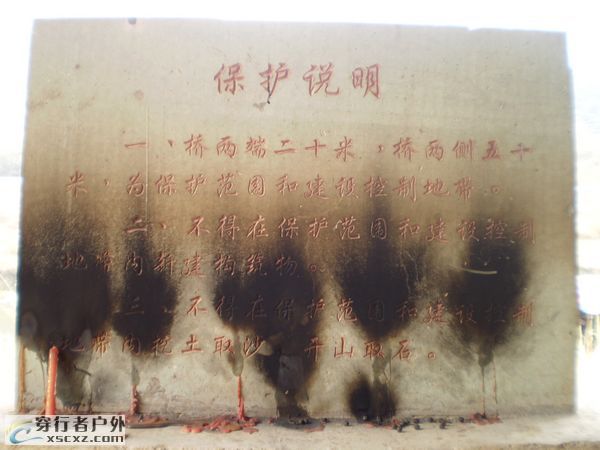 保护说明
一、桥两端二十米，桥两侧五十
米，为保护范围和建设控制地带。
二、不得在保护范围和建设控制
地带内新建构筑物。
三、不得在保护范围和建设控制
地带内挖土取沙 开山取石。
穿行者户外
xscxz.com